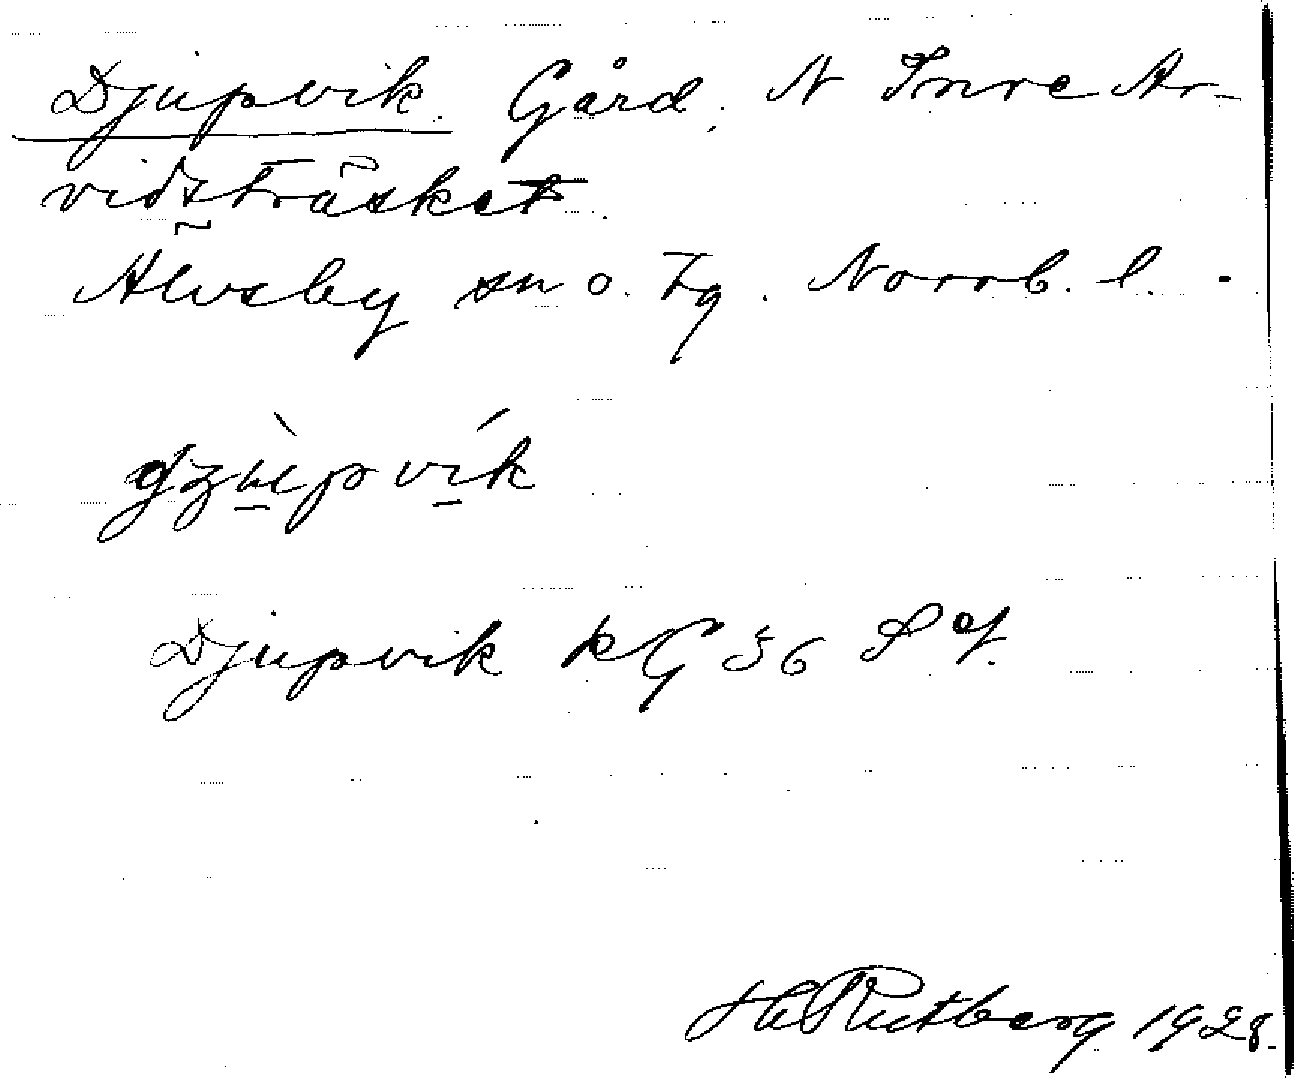 Djupvik. Gård. N Inre Ar-
vidsträsket.
Älvsby sn o. tg. Norrb. l.
Djupvik kG 36 S of.
H Rutberg 1928.